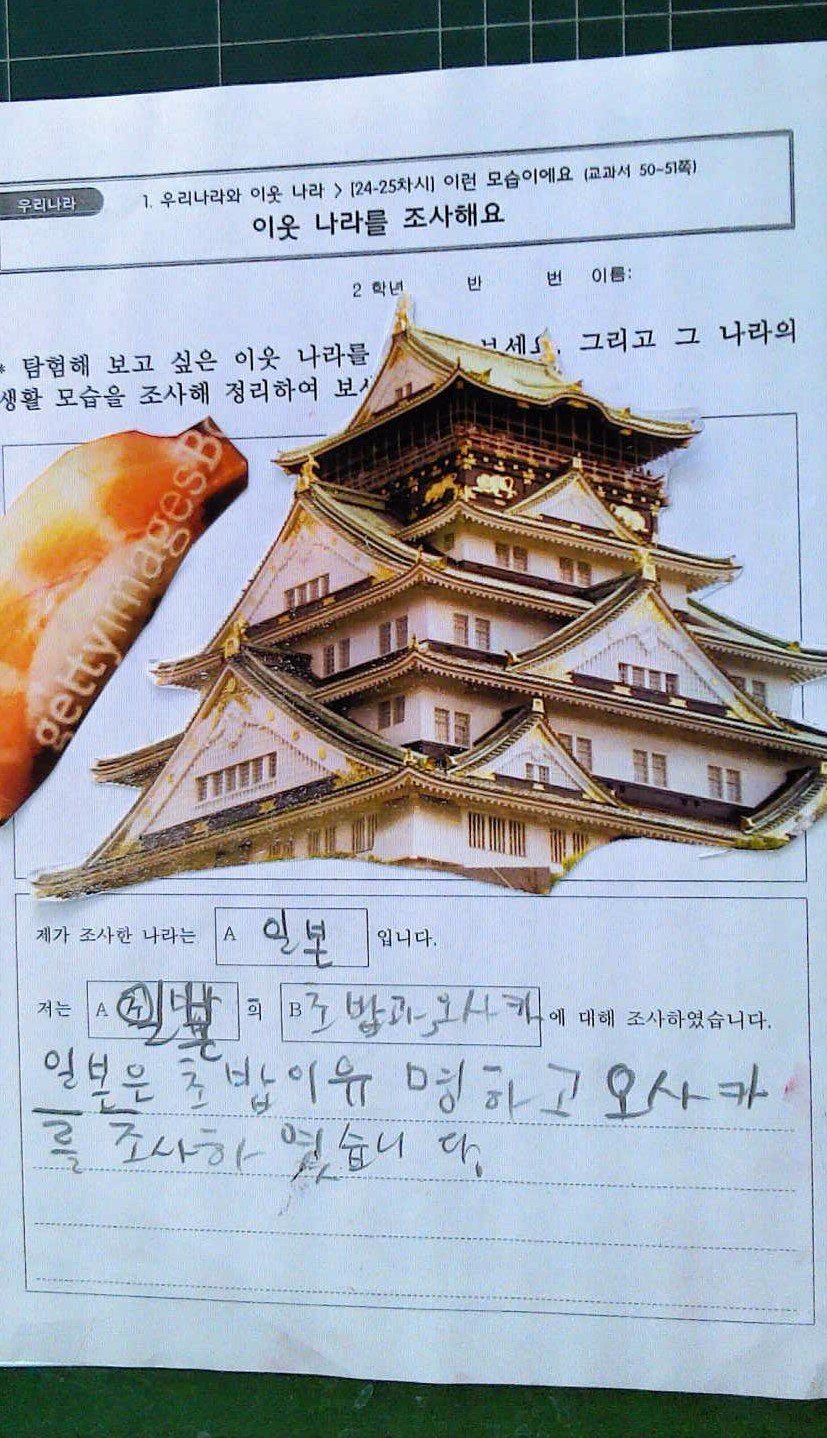 우리나라
1. 우리나라와 이웃 나라 > [24-25차시] 이런 모습이에요 (교과서 50~51쪽)
이웃 나라를 조사해요
2 학년 반 번 이름:
* 탐험해 보고 싶은 이웃 나라를 보세요. 그리고 그 나라의
생활 모습을 조사해 정리하여
gettyimagesB
제가 조사한 나라는 A 일본 입니다.
저는 A 일본 의 B 초밥과, 오사카 에 대해 조사하였습니다.
일본은 초밥이유명하고 오사카
를 조사하였습니다.